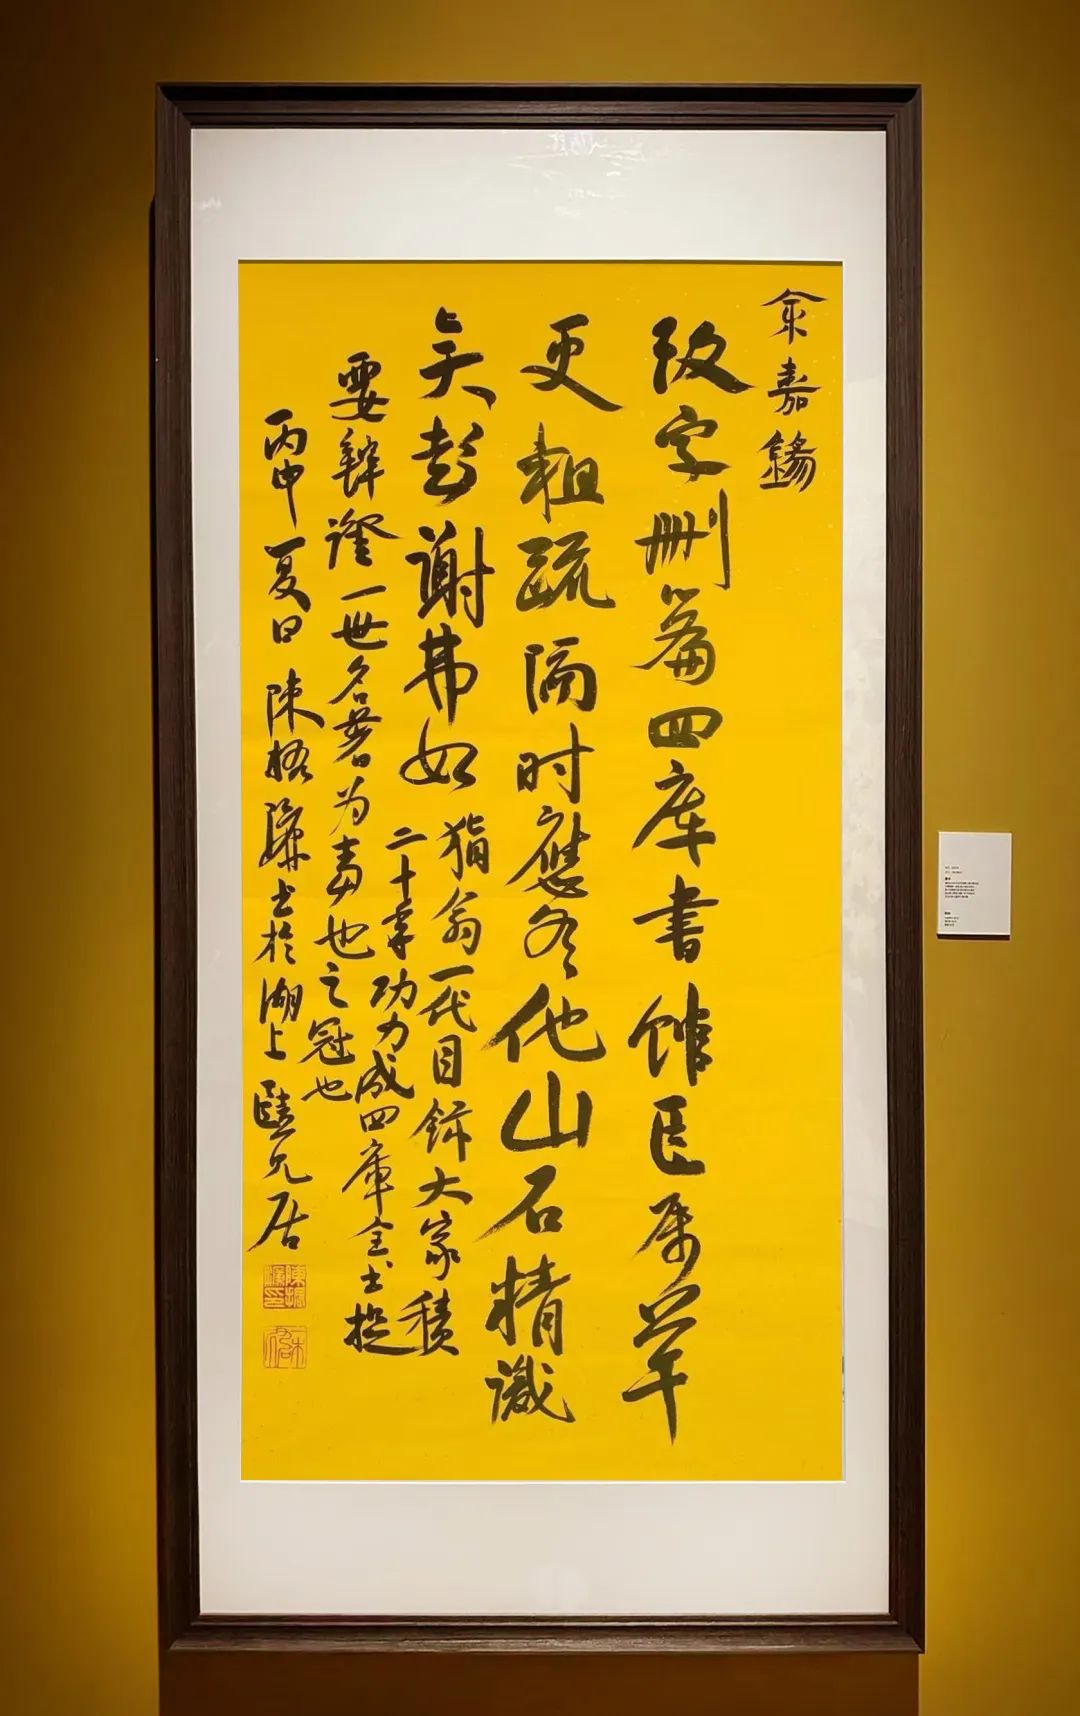 余嘉錫
改字刪篇四库書馆臣属草
更粗疏隔时應他山石精識
彭謝弗如
狷翁一代目録大家積
二十年功力成四庫全书提
要辯證一世名著为也之冠也
丙申夏日陳振濂书於湖上居